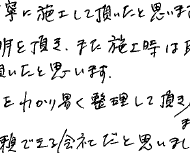 寧に施工して頂いたと思います
明を頂き、また施工時は
頂いたと思います。
をわかり易く整理して頂き
頼できる会社だと思いまし